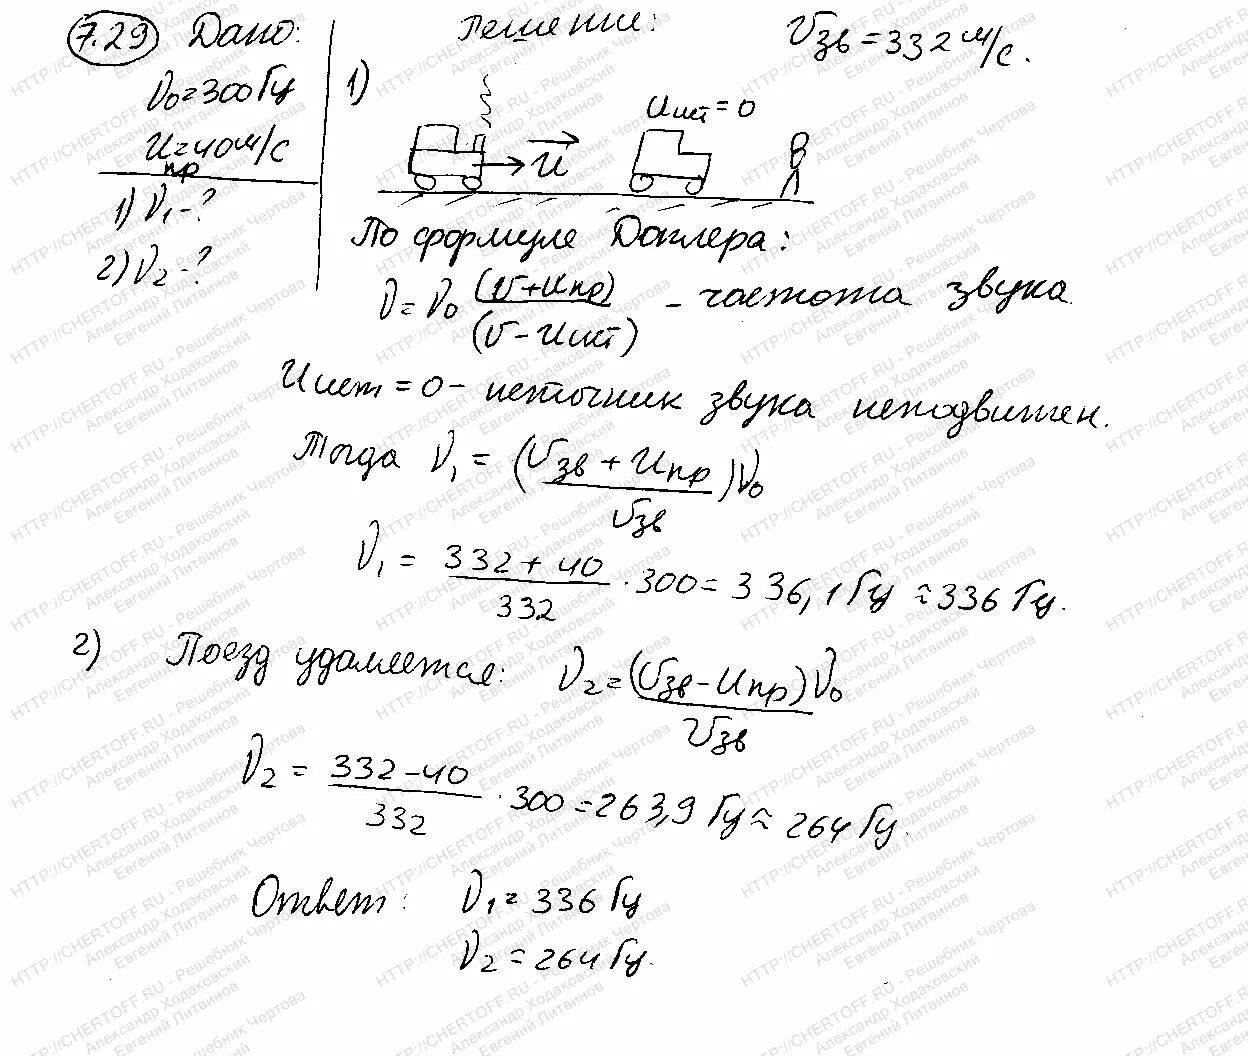 7.29 Дано:
ν₀ = 300 Гц
Uпр = 40 м/с
1) ν₁ - ?
2) ν₂ - ?
Решение: Vзв = 332 м/с.
1)
U
Uист = 0
По формуле Доплера:
ν = ν₀ (v + Uпр) / (v - Uист) - частота звука
Uист = 0 - источник звука неподвижен.
Тогда ν₁ = (Vзв + Uпр) ν₀ / Vзв
ν₁ = (332 + 40) / 332 · 300 = 336,1 Гц ≈ 336 Гц.
2) Поезд удаляется: ν₂ = (Vзв - Uпр) ν₀ / Vзв
ν₂ = (332 - 40) / 332 · 300 = 263,9 Гц ≈ 264 Гц.
Ответ: ν₁ = 336 Гц
ν₂ = 264 Гц.
HTTP://CHERTOFF.RU - Решебник Чертова
Александр Ходаковский
Евгений Литвинов